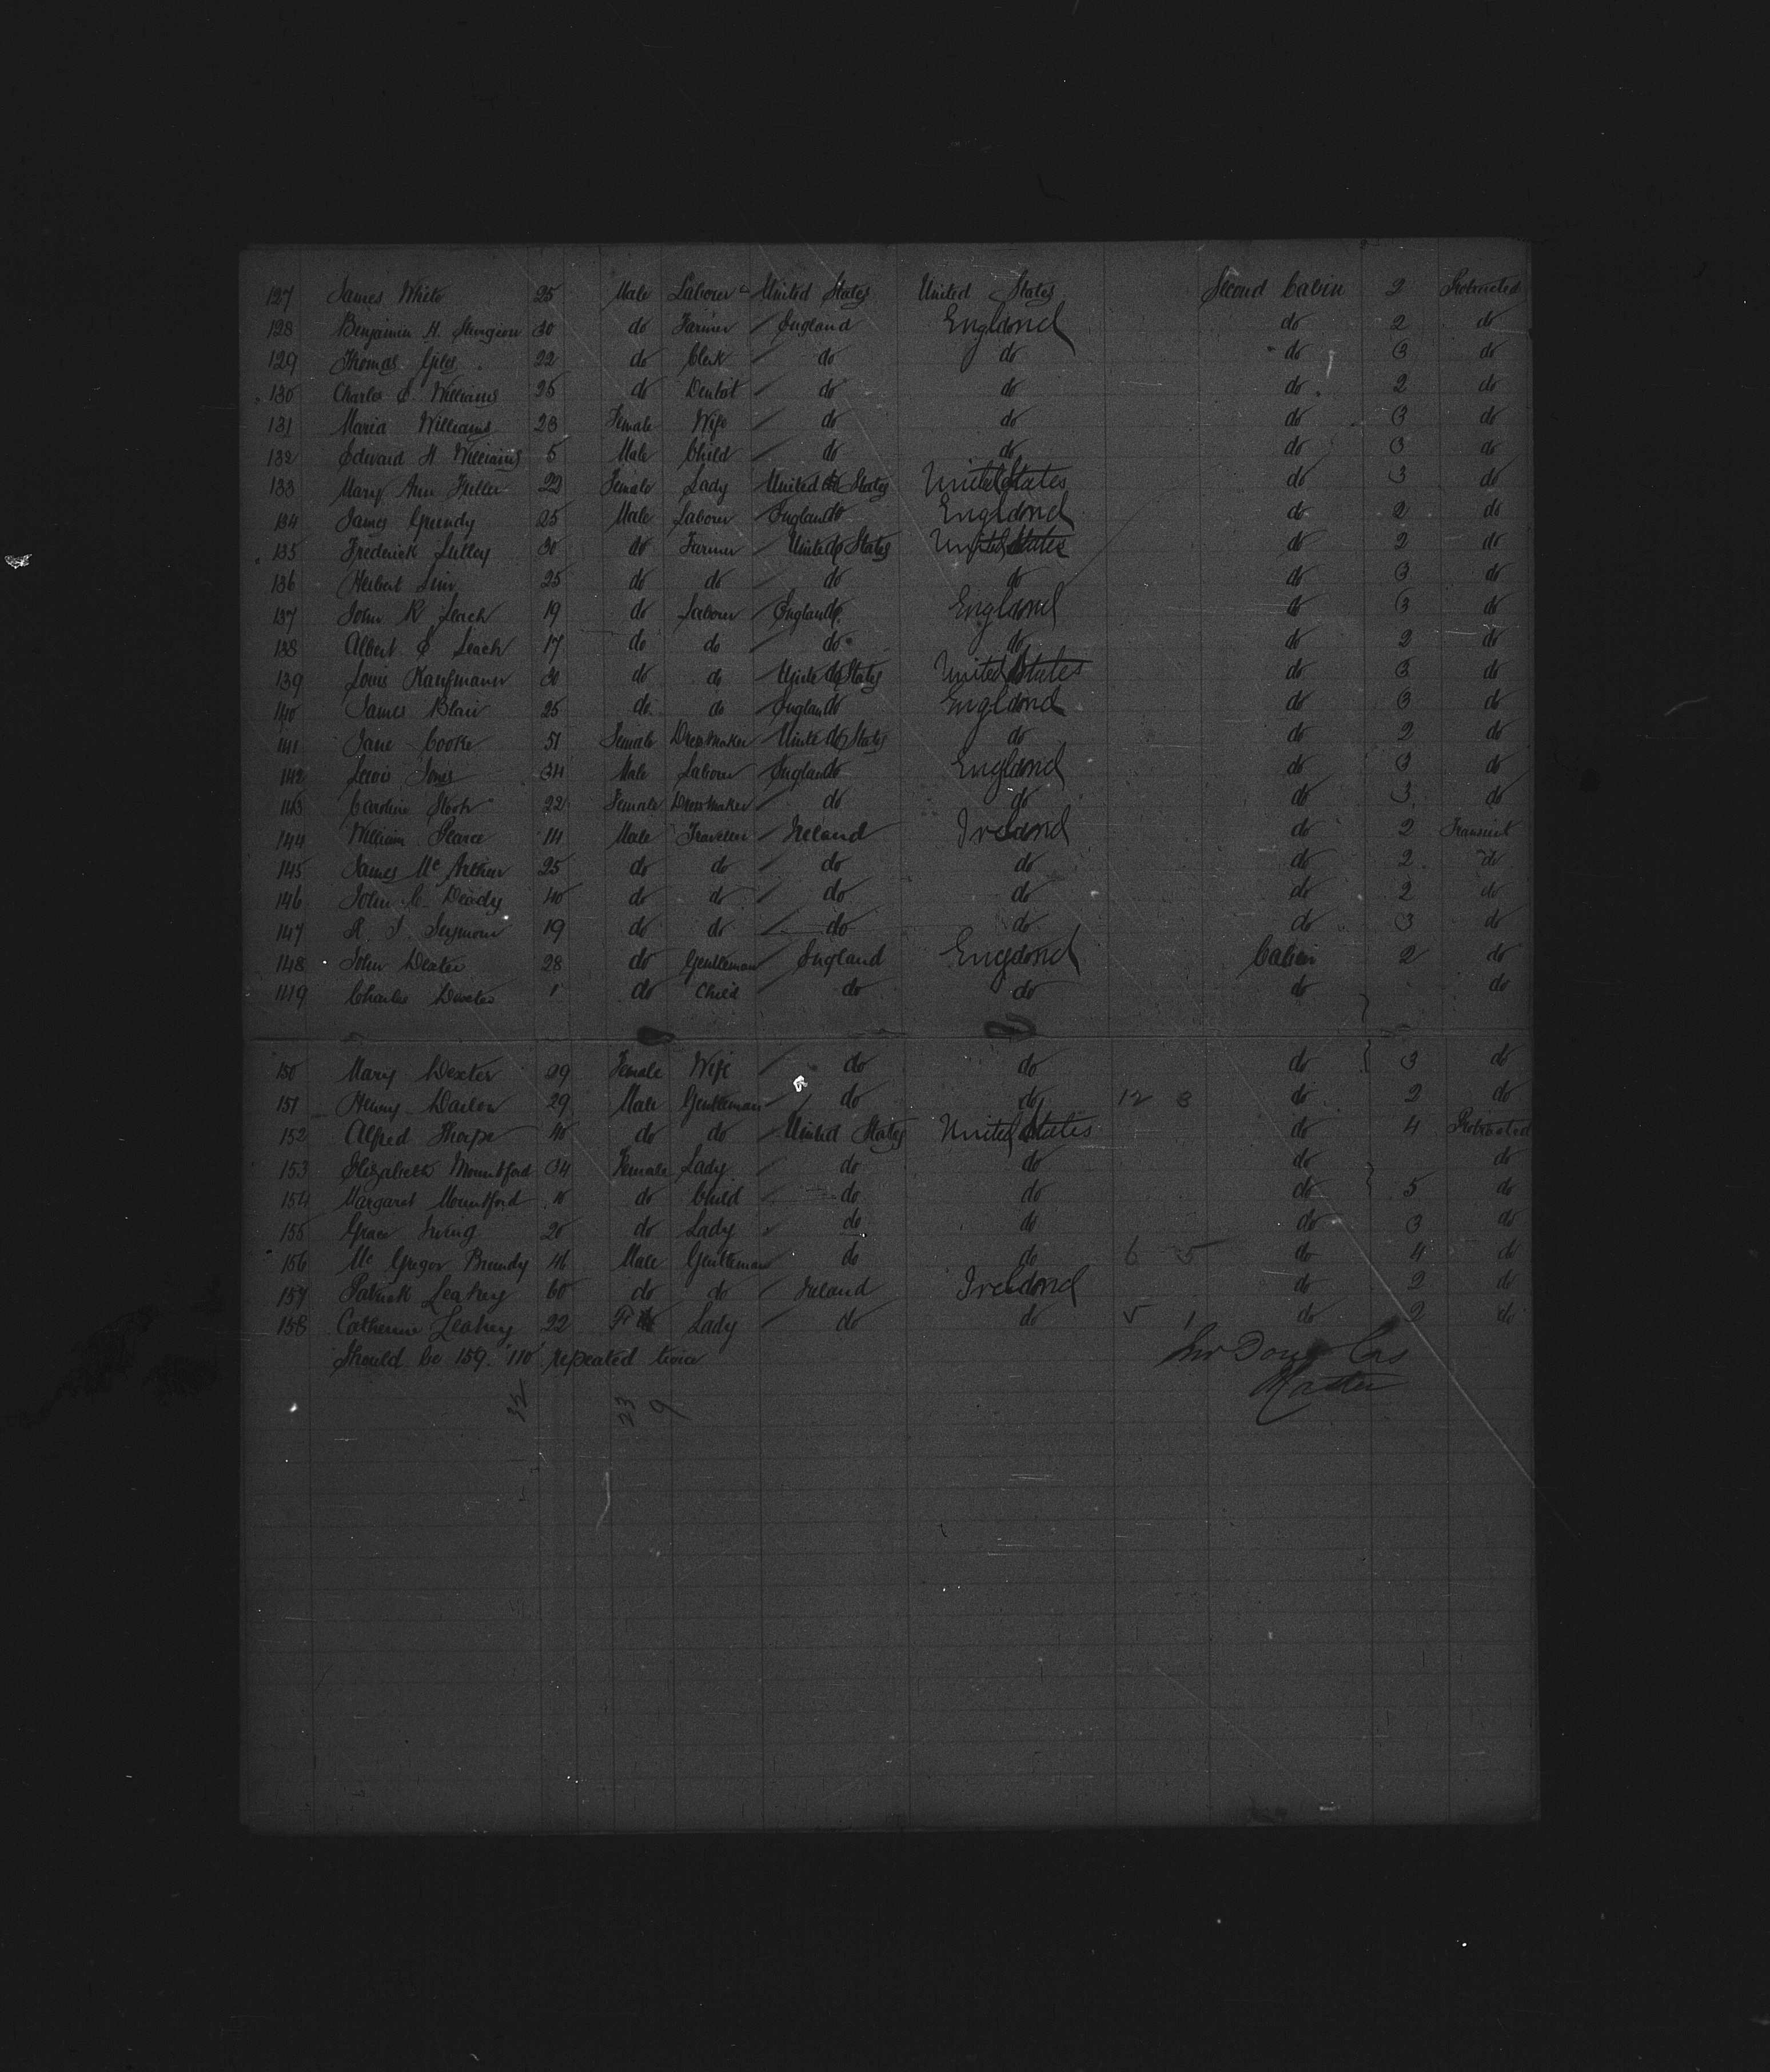 127 James White 25 Male Laborer United States United States Second Cabin 2 Protracted
128 Benjamin H. Sturgeon 30 do Farmer England England do 2 do
129 Thomas Giles 22 do Clerk do do do 3 do
130 Charles E. Williams 25 do Dentist do do do 2 do
131 Maria Williams 23 Female Wife do do do 3 do
132 Edward H Williams 5 Male Child do do do 3 do
133 Mary Ann Fuller 22 Female Lady United States United States do 3 do
134 James Grundy 25 Male Laborer England England do 2 do
135 Frederick Lulley 30 do Farmer United States United States do 2 do
136 Herbert 25 do do do do do 3 do
137 John R Leach 19 do Laborer England England do 3 do
138 Albert E. Leach 17 do do do do do 2 do
139 Louis Kaufmann 30 do do United States United States do 3 do
140 James Blair 25 do do England England do 3 do
141 Jane Cooke 51 Female Dressmaker United States do do 2 do
142 Lewis Jones 34 Male Laborer England England do 3 do
143 Caroline 22 Female Dressmaker do do do 3 do
144 William Pearce 14 Male Traveler Ireland Ireland do 2 Transient
145 James Mc Arthur 25 do do do do do 2 do
146 John C. Deady 40 do do do do do 2 do
147 R. J. Seymour 19 do do do do do 3 do
148 John Dexter 28 do Gentleman England England Cabin 2 do
149 Charles Dexter 1 do Child do do do do
150 Mary Dexter 29 Female Wife do do do 3 do
151 Henry 29 Male Gentleman do do 12 3 do 2 do
152 Alfred Thorpe 40 do do United States United States do 4 Protracted
153 Elizabeth Mountford 34 Female Lady do do do do
154 Margaret Mountford 10 do Child do do do 5 do
155 Grace Irving 20 do Lady do do do 3 do
156 Mc Gregor Brundy 46 Male Gentleman do do 6 5 do 4 do
157 Patrick Leahy 60 do do Ireland Ireland do 2 do
158 Catherine Leahy 22 F Lady do do 5 1 do 2 do
Should be 159. "110" repeated twice
Master
32 23 9